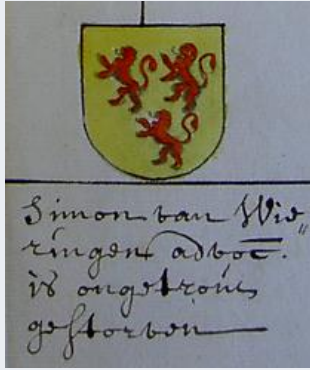 Simon van Wie„
ringen advoc̅.
is ongetrout
gestorven